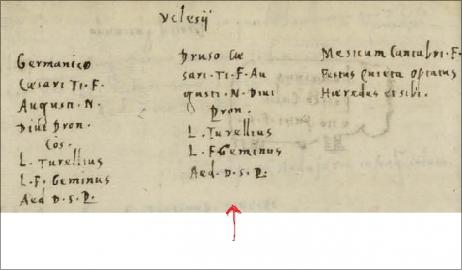 Vclesij
Germanico
Cæsari · Ti · F ·
Augusti · N ·
Divi Pron ·
Cos ·
L · Turellius
L · F · Geminus
Aed D · S · P ·
Druso Cæ
sari · Ti · F · Au
gusti · N · Divi
Pron ·
L · Turellius
L · F Geminus
Aed · D · S · P ·
Mesicum Cantabri · F ·
Festus Quieta Optatus
Hæredes et sibi ·